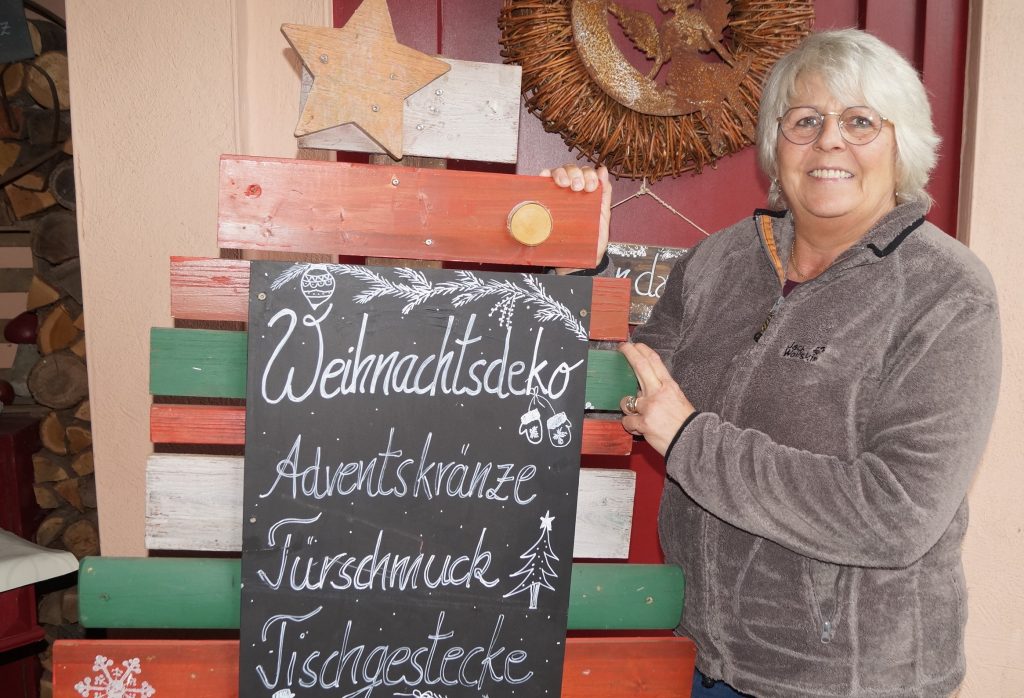 Weihnachtsdeko
Adventskränze
Türschmuck
Tischgestecke
Jack
Wolfskin